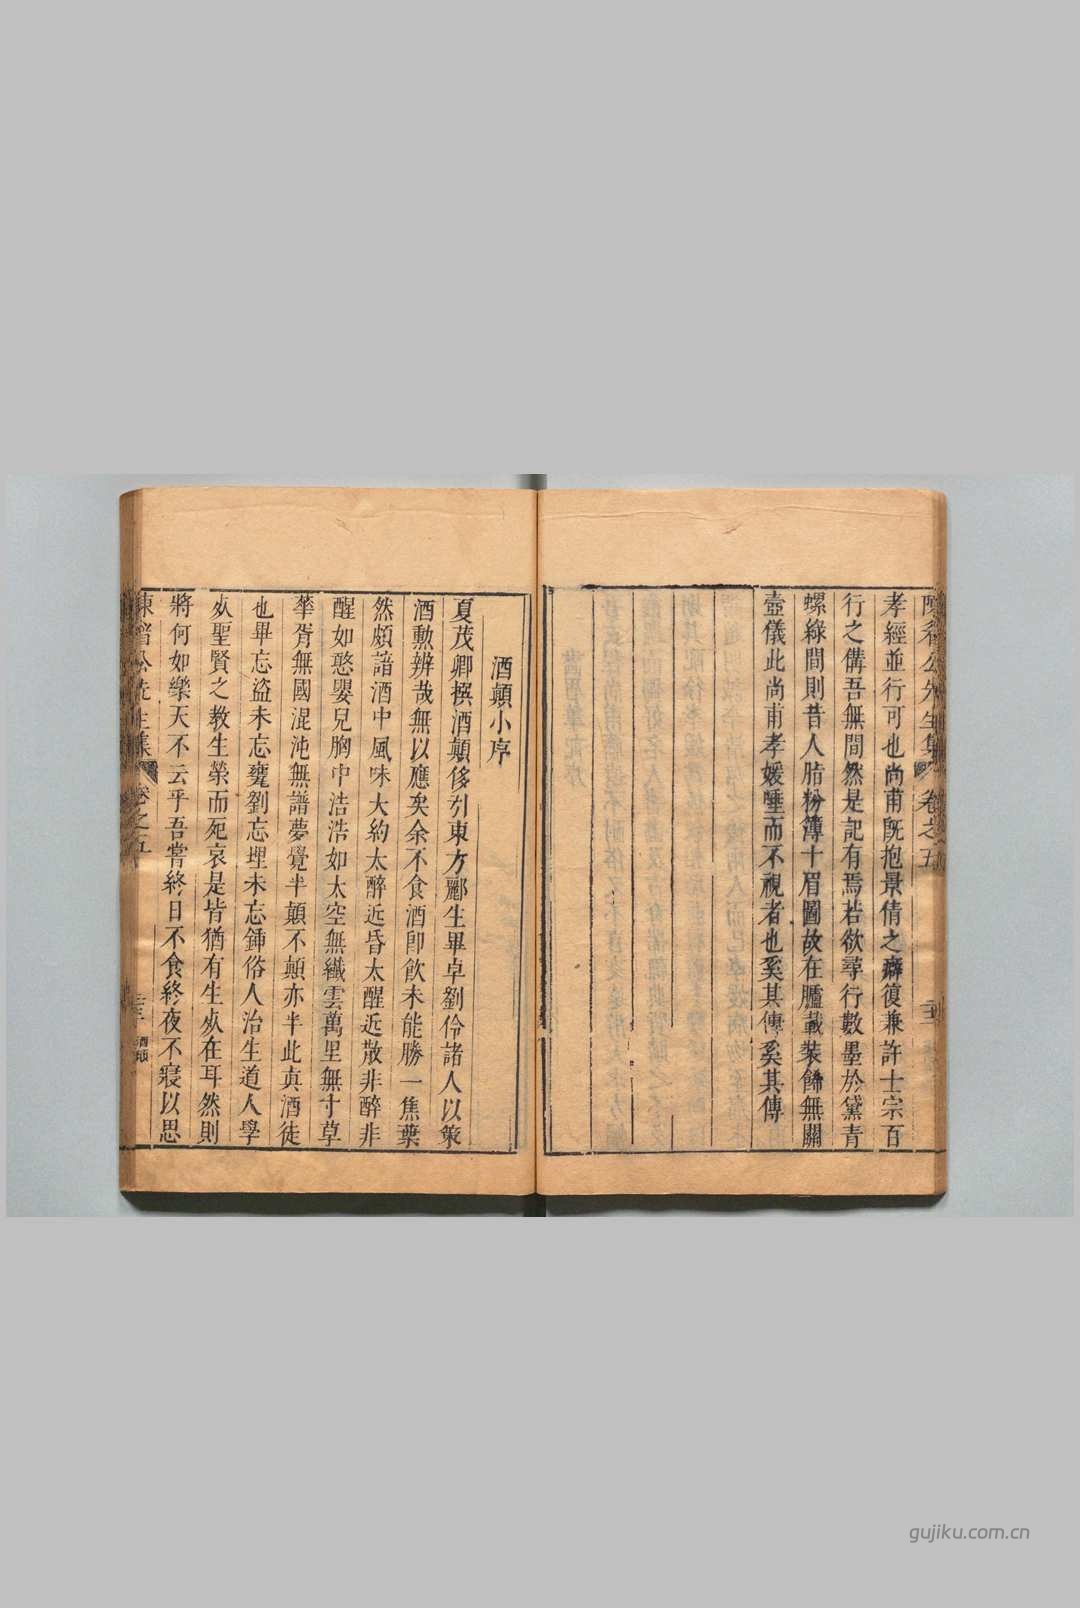 陳眉公先生集 卷之五
孝經並行可也尚甫旣抱景倩之癖復兼許士宗百
行之備吾無間然是記有焉若欲尋行數墨於黛青
螺綠間則昔人脂粉簿十眉圖故在臚載裝餙無關
壼儀此尚甫孝媛唾而不視者也奚其傳奚其傳
酒顚小序
夏茂卿撰酒顚侈引東方酈生畢卓劉伶諸人以策
酒勲辨哉無以應矣余不食酒卽飲未能勝一焦葉
然頗諳酒中風味大約太醉近昏太醒近散非醉非
醒如憨嬰兒胸中浩浩如太空無纖雲萬里無寸草
華胥無國混沌無譜夢覺半顚不顚亦半此真酒徒
也畢忘盜未忘甕劉忘埋未忘鍤俗人治生道人學
死聖賢之教生榮而死哀是皆猶有生死在耳然則
將何如樂天不云乎吾嘗終日不食終夜不寢以思
陳眉公先生集 卷之五 酒顚
gujiku.com.cn